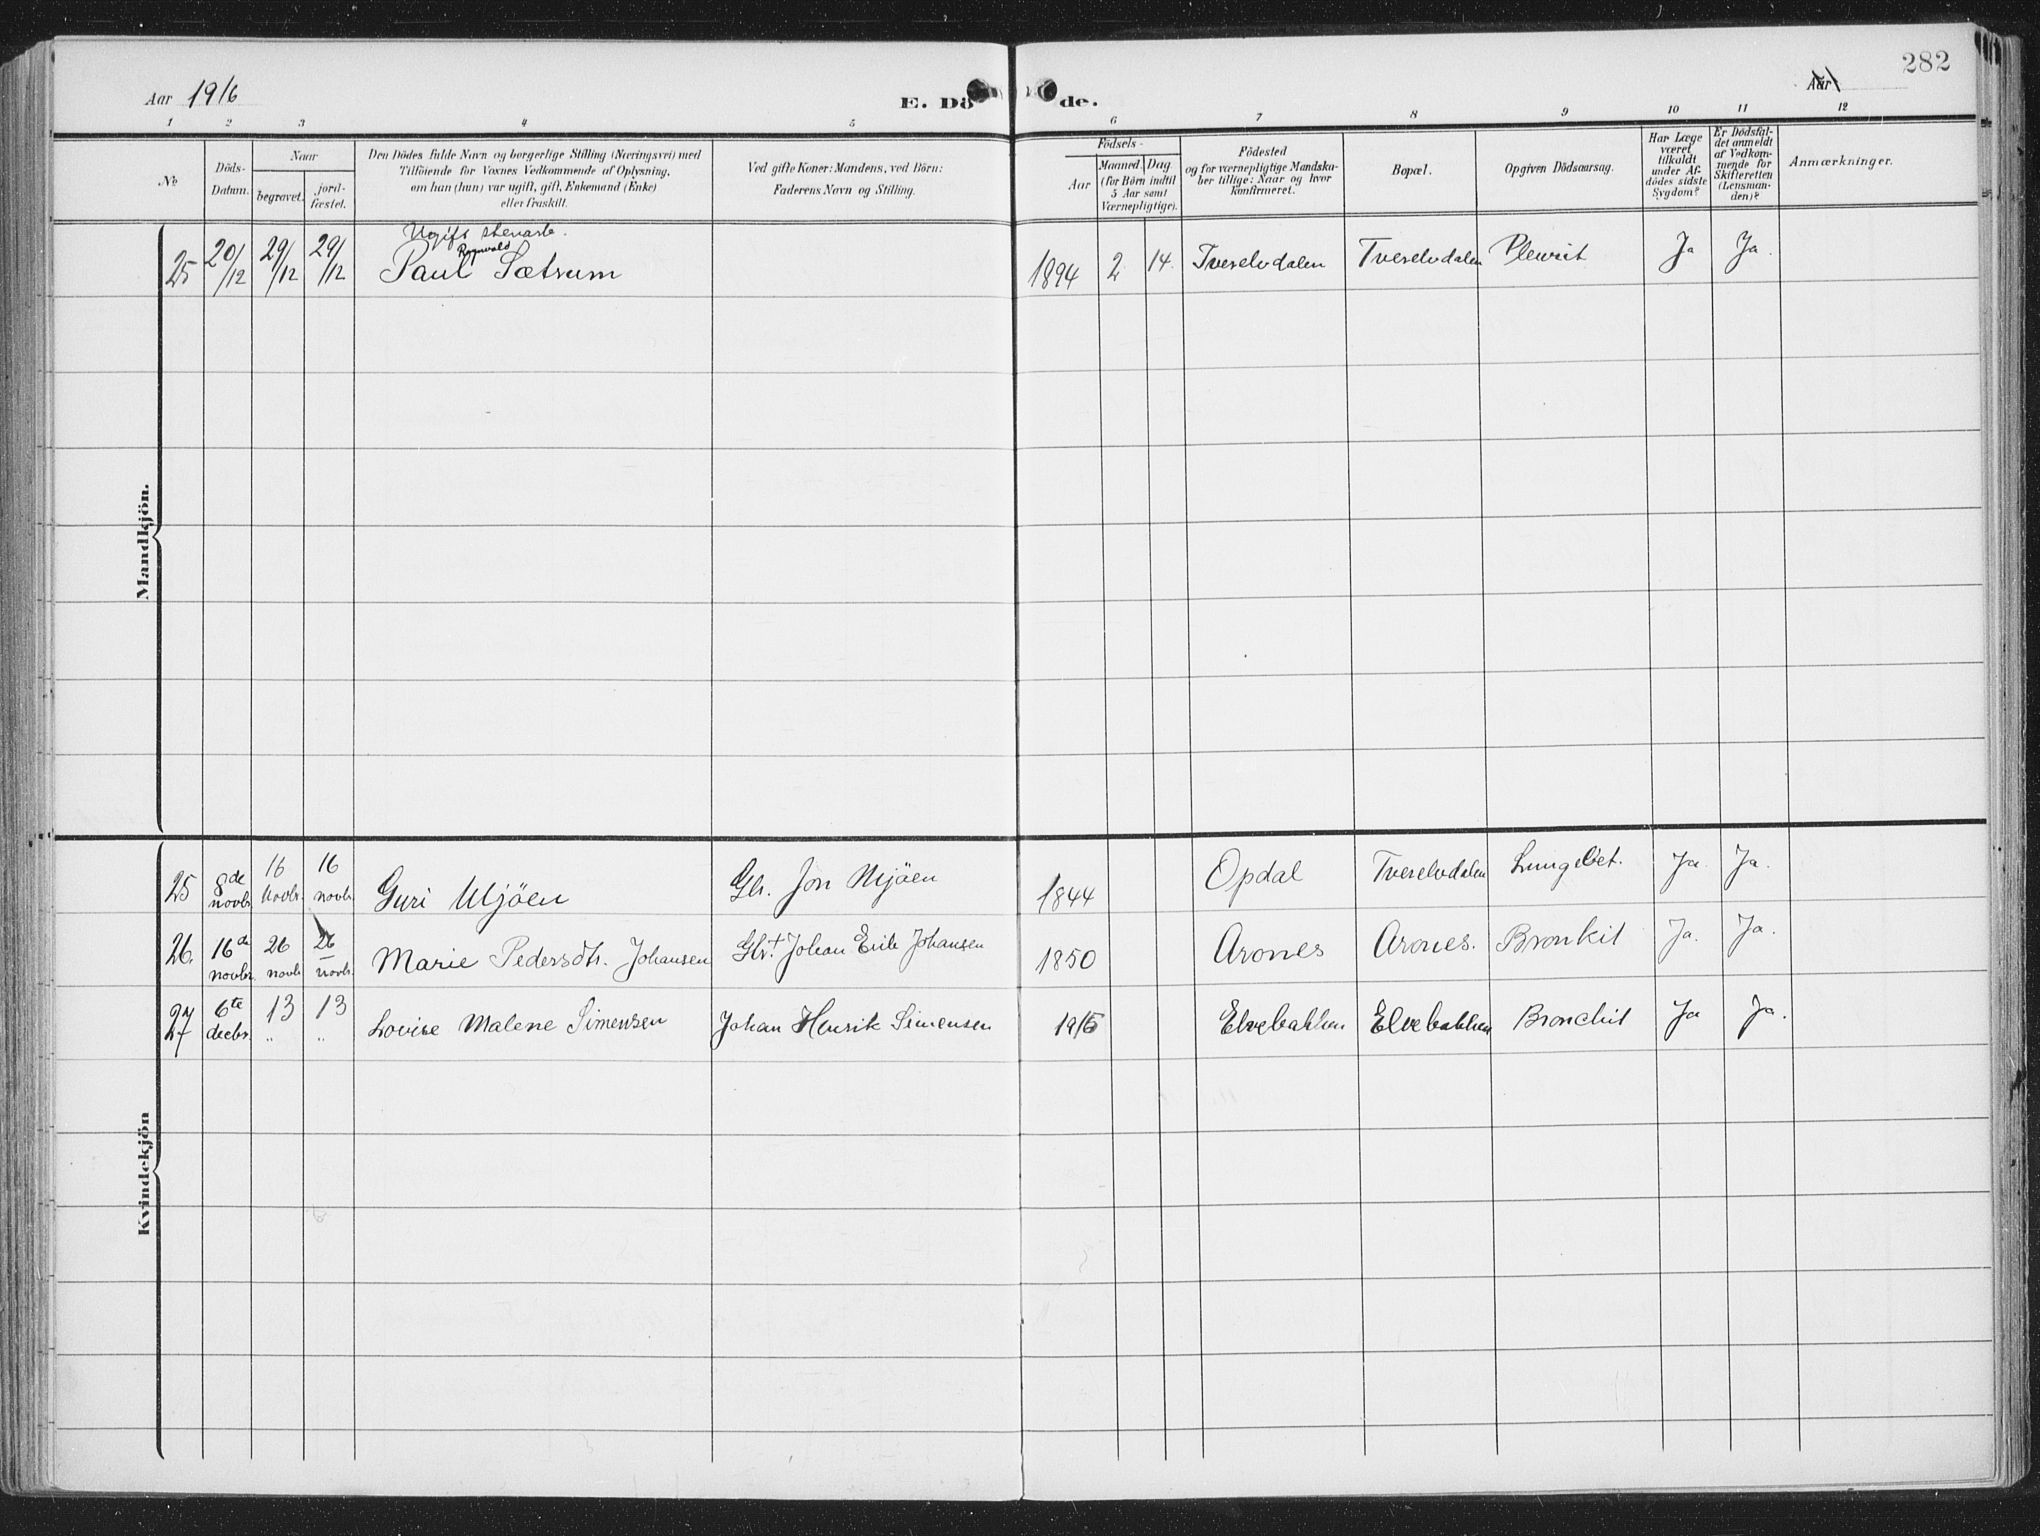 282
Aar 1916
E. Dö de.
Aar
1 2 3 4 5 6 7 8 9 10 11 12
№
Döds-Datum.
Naar
begravet.
jord-fæstet.
Den Dödes fulde Navn og borgerlige Stilling (Næringsvei) med
Tilföiende for Voxnes Vedkommende af Oplysning,
om han (hun) var ugift, gift, Enkemand (Enke)
eller fraskilt.
Ved gifte Koner: Mandens, ved Börn:
Faderens Navn og Stilling.
Födsels-
Aar
Maaned. Dag.
(for Börn indtil
5 Aar samt
Værnepligtige).
Födested
og for værnepligtige Mandska-
ber tillige: Naar og hvor
konfirmeret.
Bopæl.
Opgiven Dödsaarsag.
Har Læge
været
tilkaldt
under Af-
dödes sidste
Sygdom?
Er Dödsfal-
det anmeldt
af Vedkom-
mende for
Skifteretten
(Lensman-
den)?
Anmærkninger.
Mandkjön.
Ugift
Ragnvald
25 20/12 29/12 29/12 Paul Sætrum 1894 2 14. Tverelvdalen Tverelvdalen Pleurit Ja Ja.
Kvindekjön
25 8de novbr. 16 Novbr. 16 novbr. Guri Mjöen Gbr. Jon Mjöen 1844 Opdal Tverelvdalen Ja. Ja.
26. 16de novbr. 26 novbr. 26 novbr. Marie Pedersdtr. Johansen Gbr.† Johan Erik Johansen 1850 Arones Arones. Bronkit Ja. Ja.
27 6te decbr. 13 „ 13 „ Lovise Malene Simensen Johan Henrik Simensen 1916 Elvebakken Elvebakken Bronchit Ja Ja.